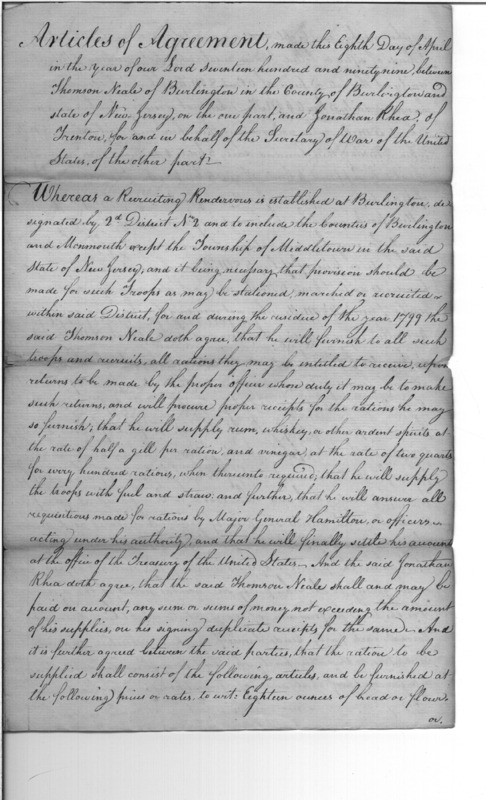 Articles of Agreement, made this Eighth Day of April
in the Year of our Lord Seventeen hundred and ninety nine between
Thomson Neale of Burlington in the County of Burlington and
state of New Jersey, on the one part, and Jonathan Rhea, of
Trenton, for and in behalf of the Secretary of War of the United
States, of the other part.
Whereas a Recruiting Rendezvous is established at Burlington, de-
signated by 2d District No 2 and to include the Counties of Burlington
and Monmouth except the Township of Middletown in the said
State of New Jersey, and it being necessary that provision should be
made for such Troops as may be stationed, marched or recruited
within said District, for and during the residue of the year 1799 the
said Thomson Neale doth agree, that he will furnish to all such
troops and recruits, all rations they may be entitled to receive, upon
returns to be made by the proper officer whose duty it may be to make
such returns, and will procure proper receipts for the rations he may
so furnish; that he will supply rum, whiskey, or other ardent spirits at
the rate of half a gill per ration, and vinegar, at the rate of two quarts
for every hundred rations, when thereunto required; that he will supply
the troops with fuel and straw, and further, that he will answer all
requisitions made for rations by Major General Hamilton, or officers
acting under his authority, and that he will finally settle his accounts
at the office of the Treasury of the United States. And the said Jonathan
Rhea doth agree, that the said Thomson Neale shall and may be
paid on account, any sum or sums of money not exceeding the amount
of his supplies, on his signing duplicate receipts for the same. And
it is further agreed between the said parties, that the ration to be
supplied shall consist of the following articles, and be furnished at
the following prices or rates. to wit: Eighteen ounces of bread or flour
or.